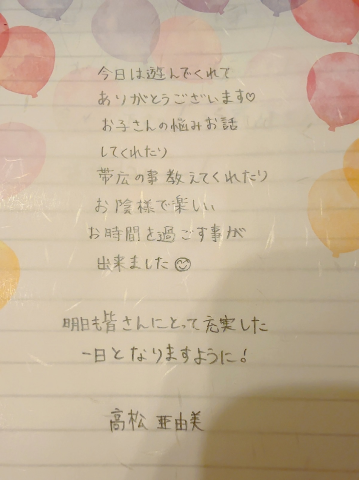 今日は遊んでくれて
ありがとうございます♡
お子さんの悩みお話
してくれたり
帯広の事教えてくれたり
お陰様で楽しい
お時間を過ごす事が
出来ました😊
明日も皆さんにとって充実した
一日となりますように!
高松 亜由美